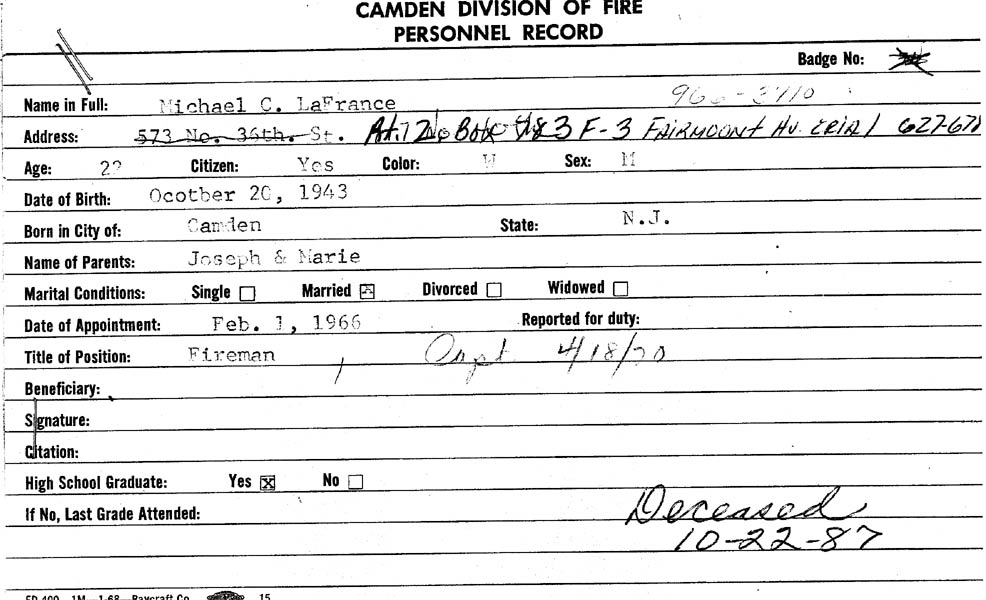 CAMDEN DIVISION OF FIRE
PERSONNEL RECORD
Badge No:
Name in Full: Michael C. LaFrance 966-3710
Address: 573 No. 36th. St. F-3 FAIRMOUNT AV. ERIAL
Age: 22 Citizen: Yes Color: W Sex: M
Date of Birth: Ocotber 20, 1943
Born in City of: Camden State: N.J.
Name of Parents: Joseph & Marie
Marital Conditions: Single Married Divorced Widowed
Date of Appointment: Feb. 1, 1966 Reported for duty:
Title of Position: Fireman Capt 4/18/70
Beneficiary:
Signature:
Citation:
High School Graduate: Yes No
If No, Last Grade Attended:
Deceased
10-22-87
FD 400 1M-1-68-Raycraft Co. 15